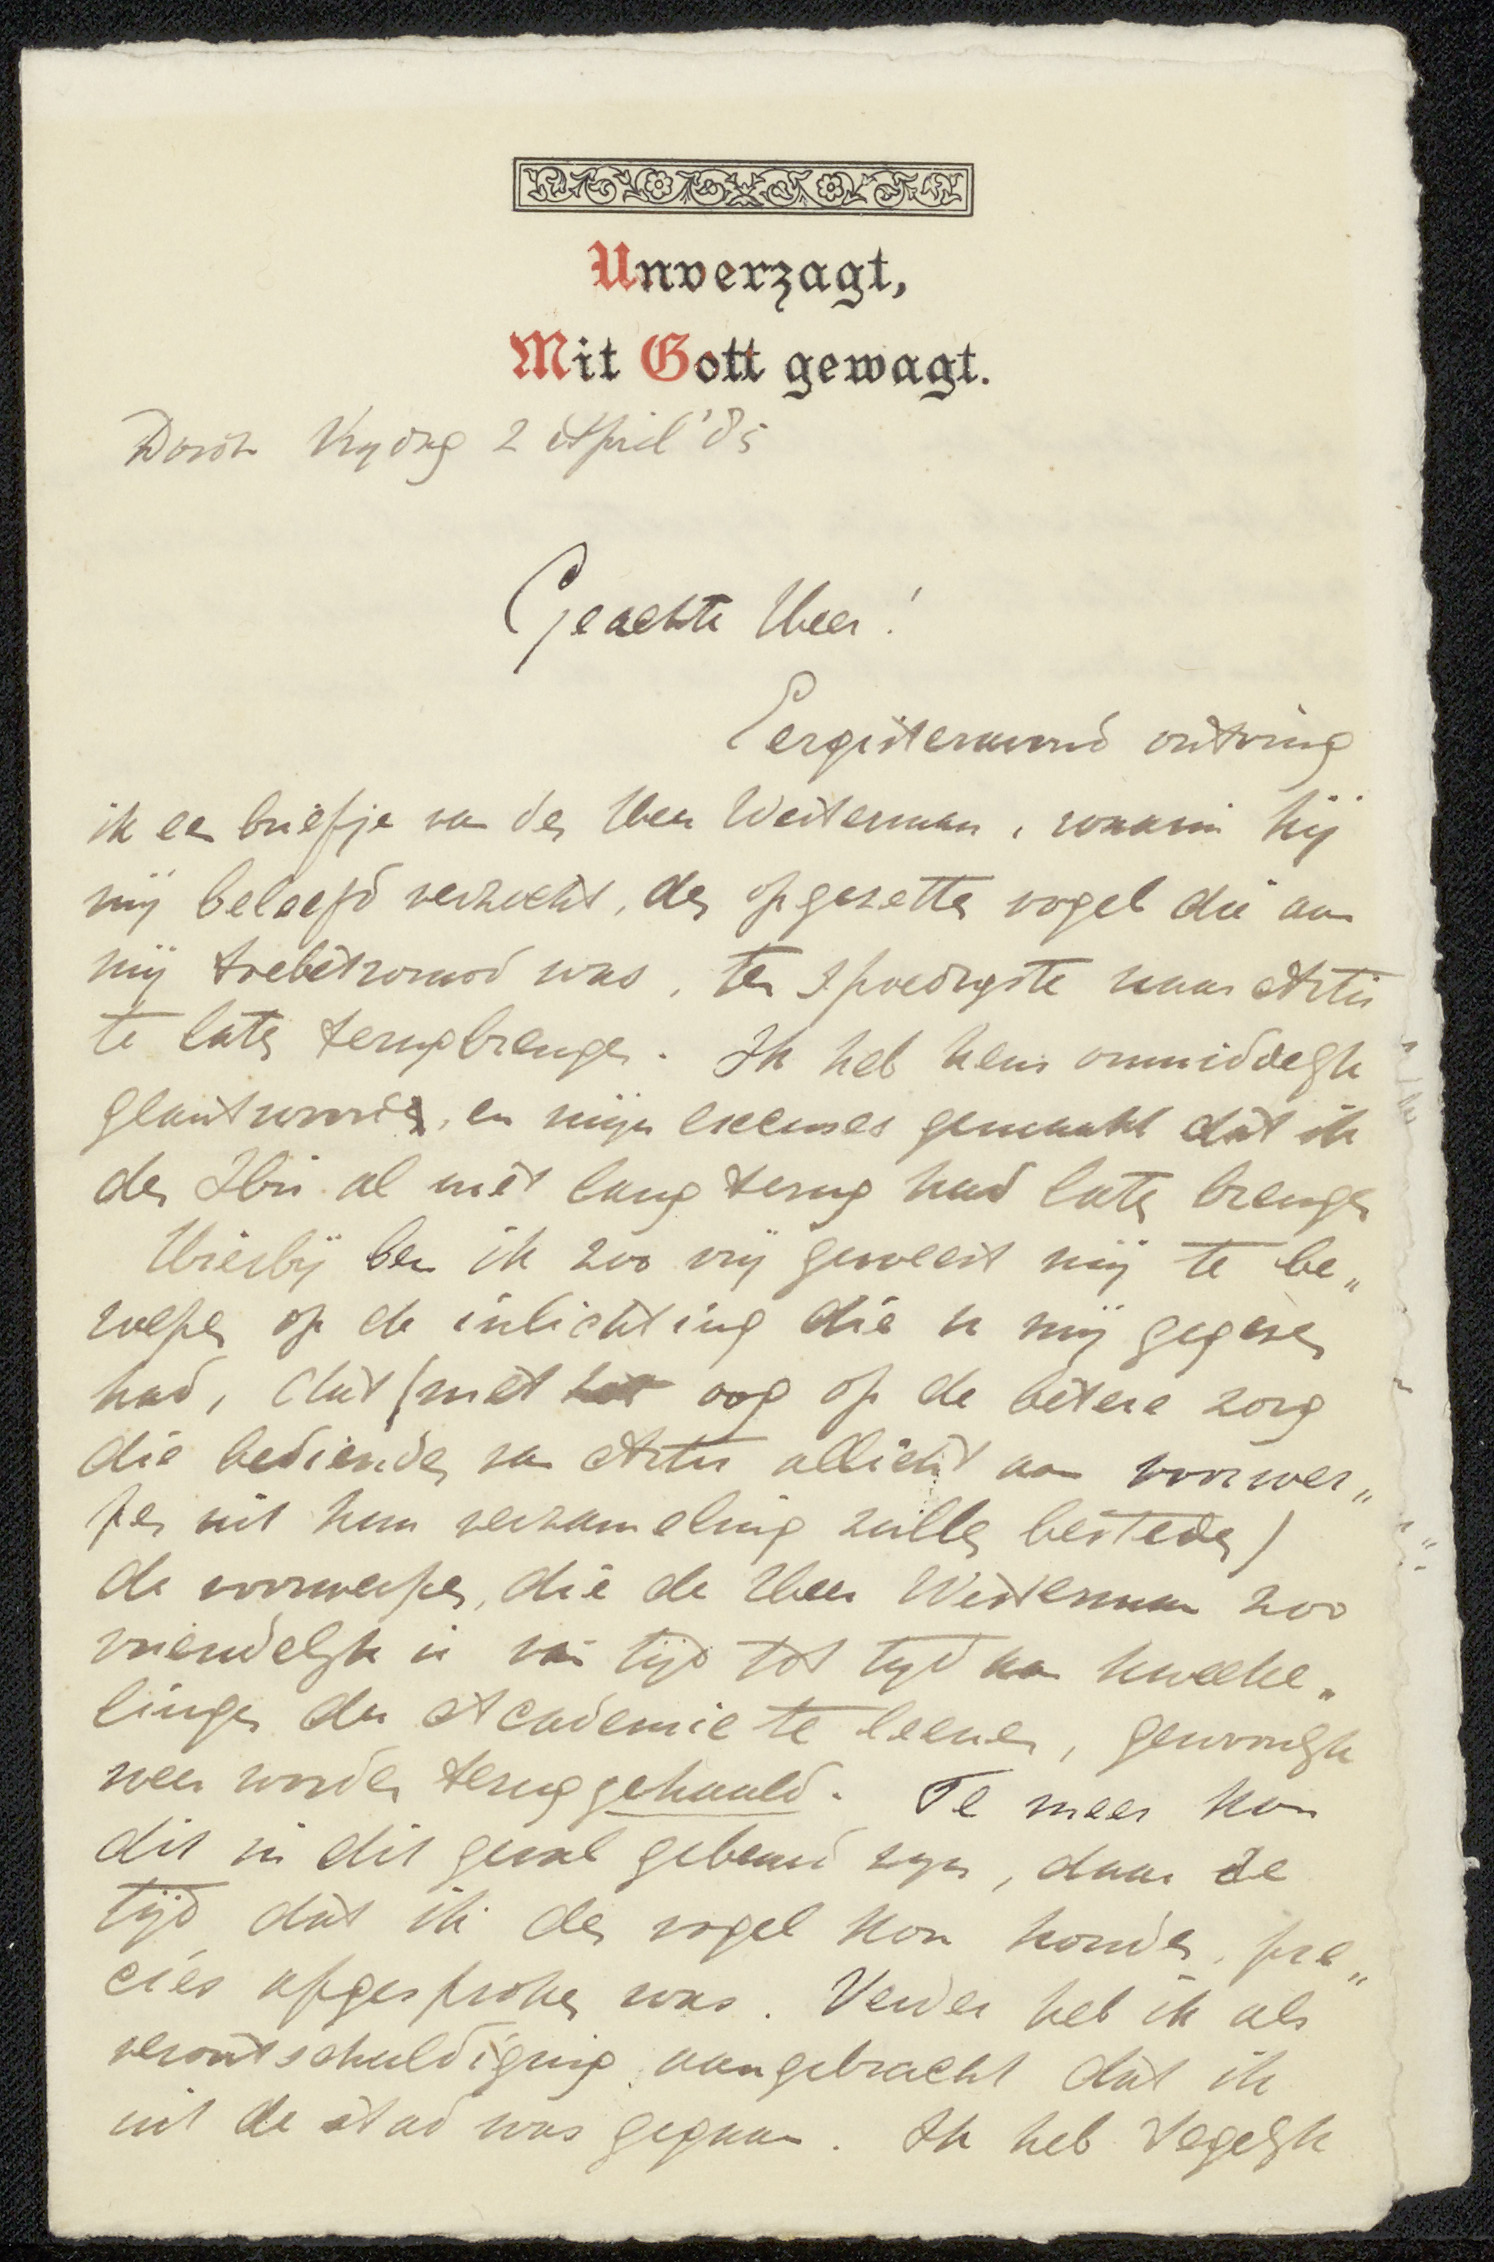 Unverzagt,
Mit Gott gewagt.
Dordt Vrydag 2 April '85
Geachte Heer!
Eergisteravond ontving
ik een briefje van den Heer Westerman, waarin hij
mij beleefd verzocht, den opgezetten vogel die aan
mij toebetrouwd was, ten spoedigste naar Artis
te laten terugbrengen. Ik heb hem onmiddelijk
geantwoord, en mijn excuses gemaakt dat ik
den Ibis al niet lang terug had laten brengen
Hierbij ben ik zoo vrij geweest mij te be„
roepen op de inlichting die u mij gegeven
had, dat (met oog op de betere zorg
die bedienden van Artis allicht aan voorwer„
pen uit hun verzameling zullen besteden)
de voorwerpen, die de Heer Westerman zoo
vriendelijk is van tijd tot tijd aan kweeke„
lingen der Academie te leenen, gewoonlijk
weer worden teruggehaald. Te meer kon
dit in dit geval gebeurd zijn, daar de
tijd dat ik den vogel kon houden, pre„
cies afgesproken was. Verder heb ik als
verontschuldiging aangebracht dat ik
uit de stad was gegaan. Ik heb